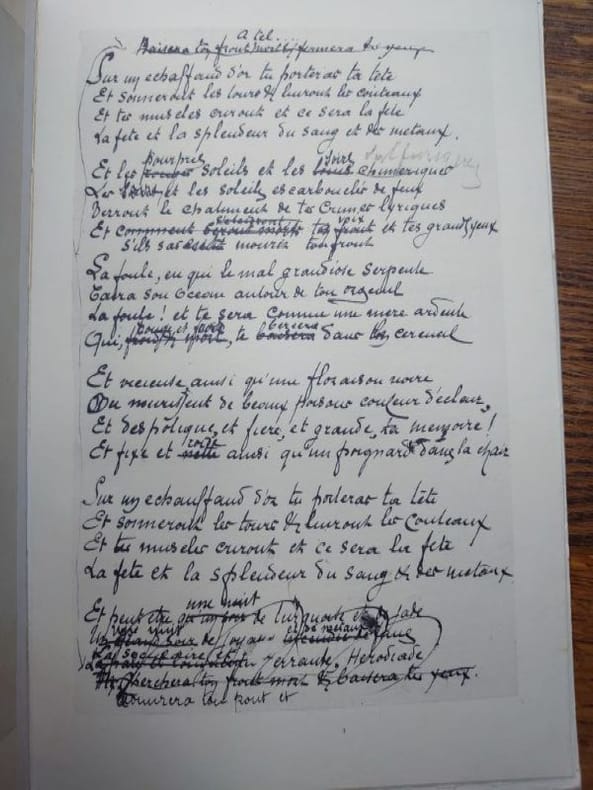 A tel....
Baisera ton front mort & fermera tes yeux
Sur un echaffaud d'or tu porteras ta tête
Et sonneront les tours & luiront les couteaux
Et tes muscles crieront et ce sera la fete
La fete et la splendeur du sang et des metaux.
pourpres soirs
Et les soleils et les chimeriques
Les et les soleils escarboucles de feux
Verront le chatiment de tes Crimes lyriques
voix
Et comment ton front et tes grands yeux
s'ils savent mourir ton front
La foule, en qui le mal grandiose serpente
Taira son Ocean autour de ton orgueil
La foule! et te sera comme une mere ardente
bercera
Qui, , te baisera dans ton cercueil
Et vicieuse ainsi qu'une floraison noire
Ou murissent de beaux poisons couleur d'eclair,
Et despôtique, et fiere, et grande, ta memoire!
froide
Et fixe et nette ainsi qu'un poignard dans la chair
Sur un echauffaud d'or tu porteras ta tête
Et sonneront les tours & luiront les couteaux
Et tes muscles crieront et ce sera la fête
La fête et la splendeur du sang & des metaux
une nuit
Et peut être qu'un soir de turquoise et de jade
de metaux
La
errante, Herodiade
cherchera ton front mort & baisera tes yeux.
ton front et